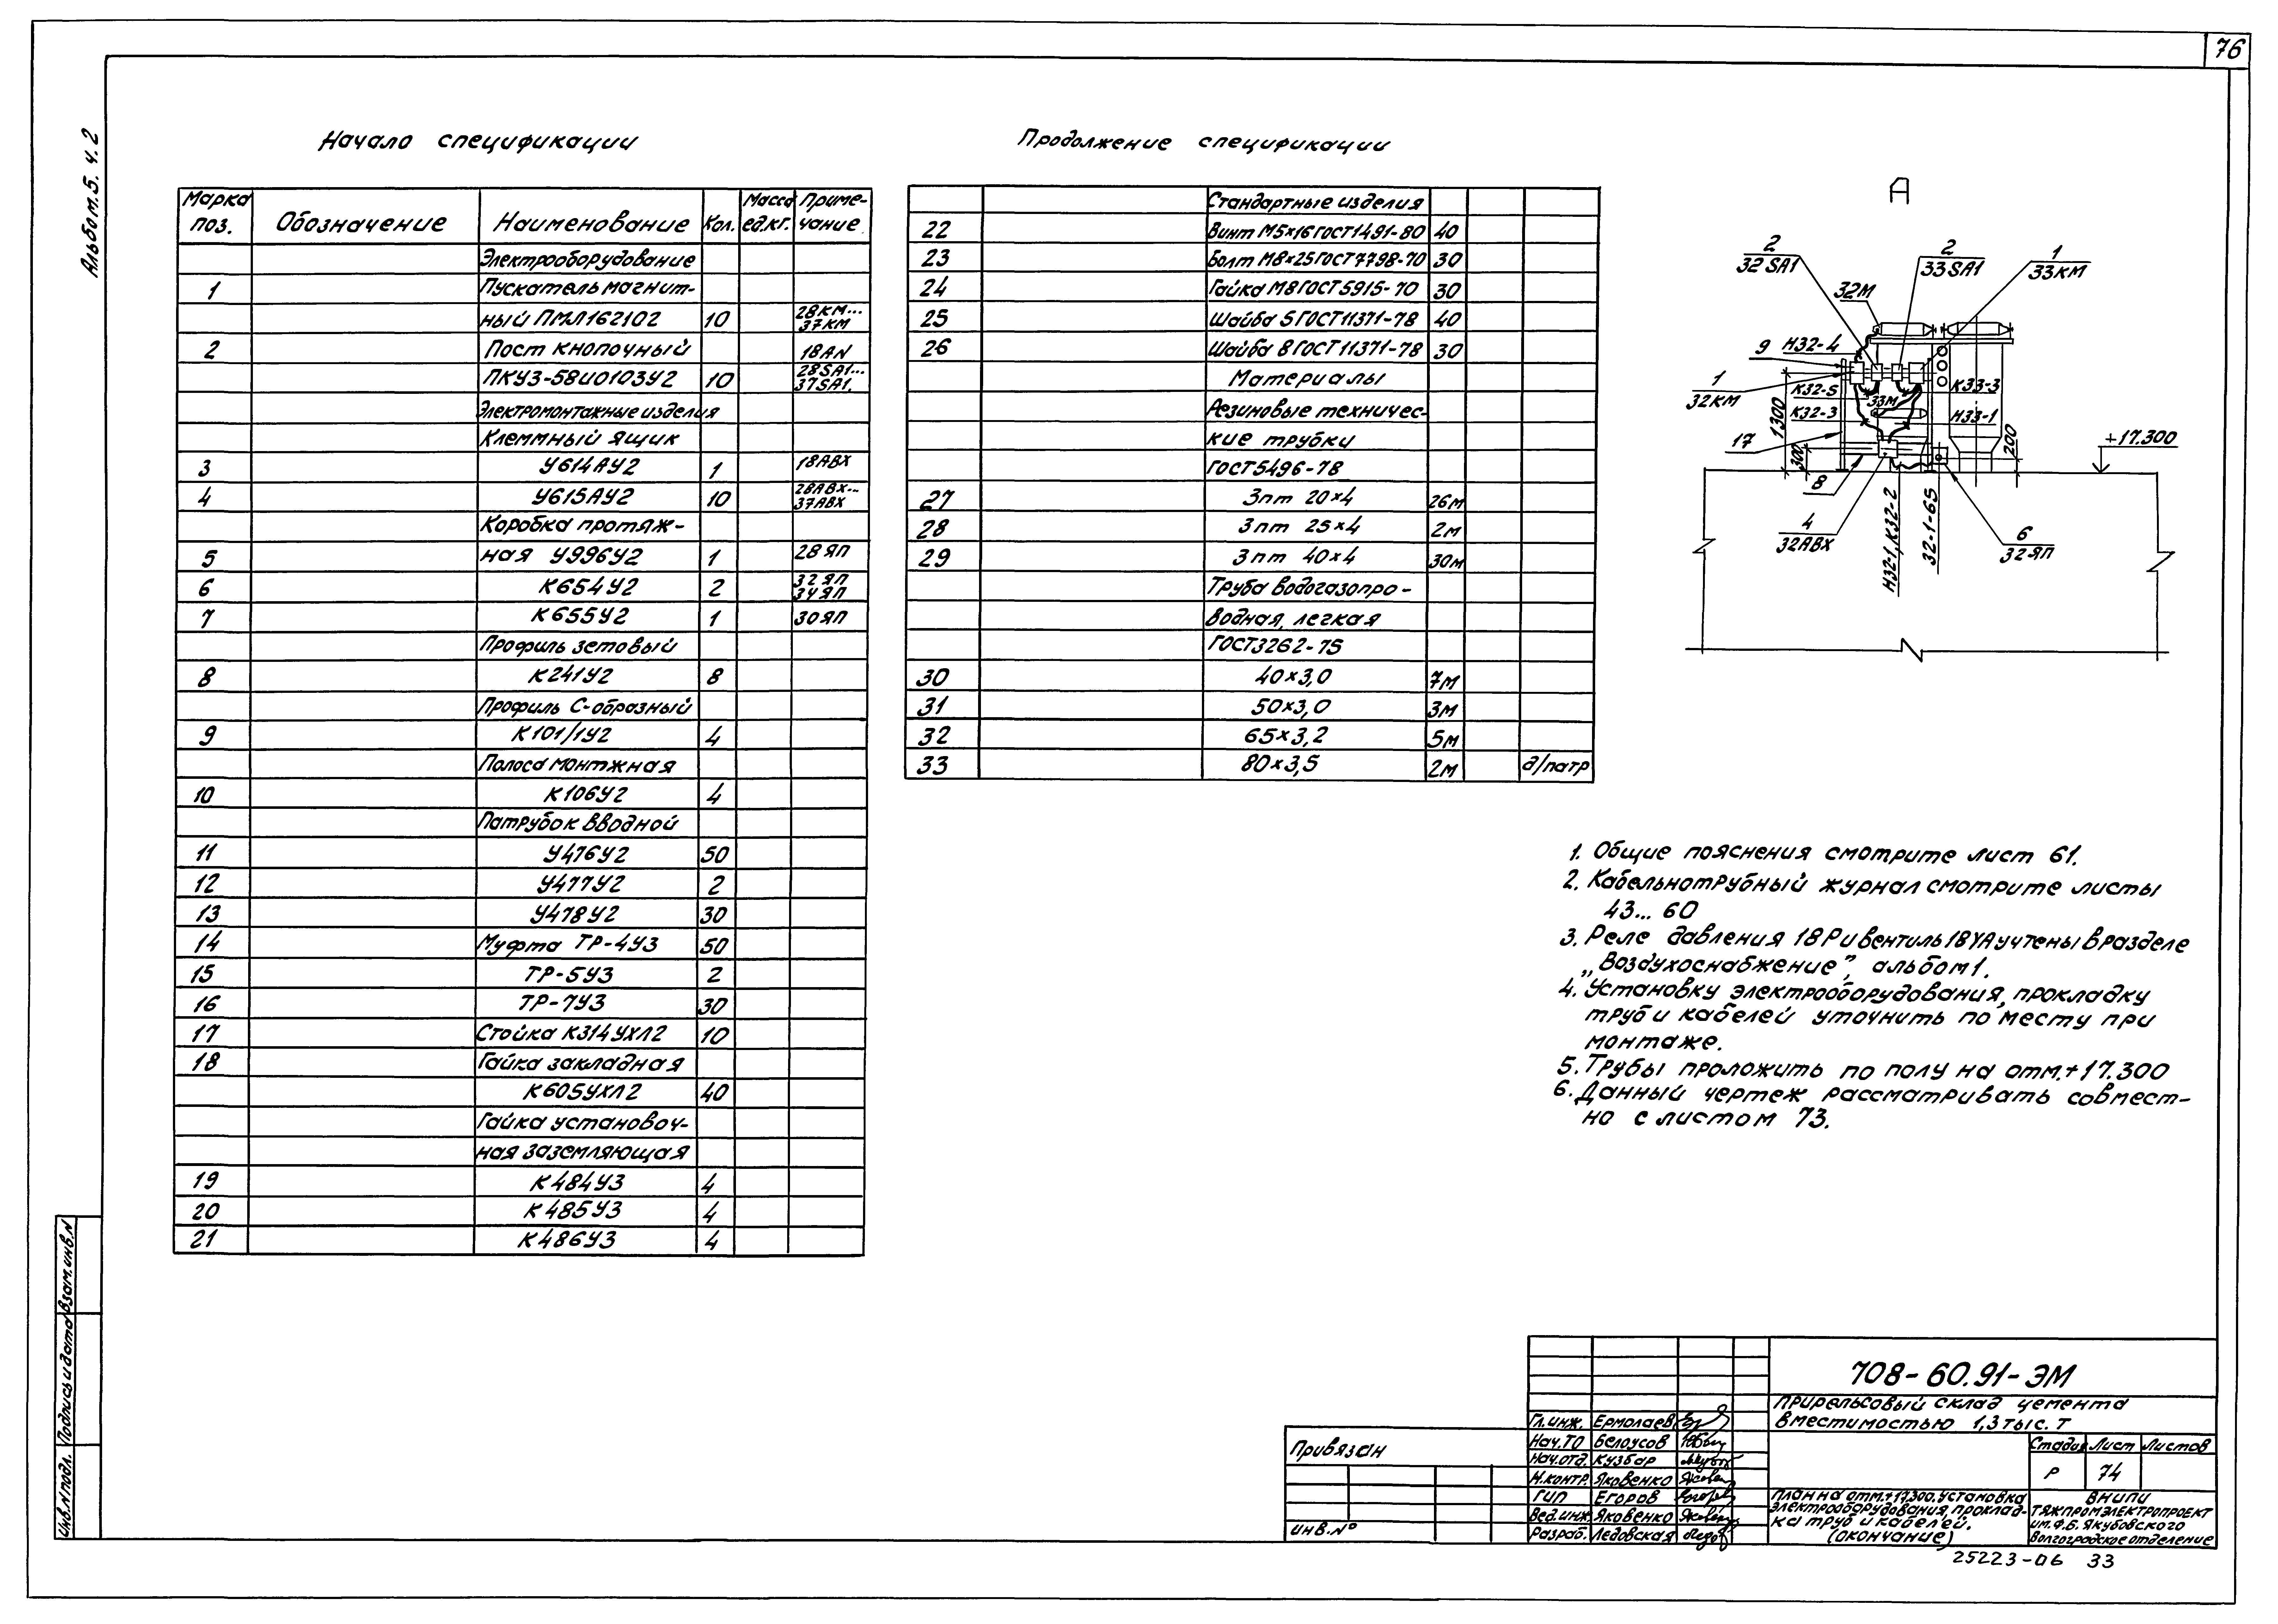 76
Альбом.5. ч.2
Начало спецификации
Марка поз. Обозначение Наименование Кол. Масса ед.кг. Приме-чание
Электрооборудование
1 Пускатель магнит-
ный ПМЛ162102 10 28КМ... 37КМ
2 Пост кнопочный 18АN
ПКУ3-58И0103У2 10 28SA1... 37SA1.
Электромонтажные изделия
Клеммный ящик
3 У614АУ2 1 18АВХ
4 У615АУ2 10 28АВХ... 37АВХ
Коробка протяж-
5 ная У996У2 1 28ЯП
6 К654У2 2 32ЯП 34ЯП
7 К655У2 1 30ЯП
Профиль зетовый
8 К241У2 8
Профиль С-образный
9 К101/1У2 4
Полоса монтжная
10 К106У2 4
Патрубок вводной
11 У476У2 50
12 У477У2 2
13 У478У2 30
14 Муфта ТР-4У3 50
15 ТР-5У3 2
16 ТР-7У3 30
17 Стойка К314УХЛ2 10
18 Гайка закладная
К605УХЛ2 40
Гайка установоч-
ная заземляющая
19 К484У3 4
20 К485У3 4
21 К486У3 4
Продолжение спецификации
Стандартные изделия
22 Винт М5×16 ГОСТ1491-80 40
23 Болт М8×25 ГОСТ7798-70 30
24 Гайка М8 ГОСТ5915-70 30
25 Шайба 5 ГОСТ11371-78 40
26 Шайба 8 ГОСТ11371-78 30
Материалы
Резиновые техничес-
кие трубки
ГОСТ5496-78
27 3пт 20×4 26м
28 3пт 25×4 2м
29 3пт 40×4 30м
Труба водогазопро-
водная, легкая
ГОСТ3262-75
30 40×3,0 7м
31 50×3,0 3м
32 65×3,2 5м
33 80×3,5 2м д/патр
А
2
32SA1
2
33SA1
1
33КМ
32М
9 Н32-4
1
32КМ
К32-5
К33-3
33М
К32-3
Н33-1
1300
17
300
200
+17.300
8
4
32АВХ
Н32-1, К32-2
32-1-65
6
32ЯП
1. Общие пояснения смотрите лист 61.
2. Кабельнотрубный журнал смотрите листы
43... 60
3. Реле давления 18Р и вентиль 18YA учтены в разделе
„Воздухоснабжение”, альбом1.
4. Установку электрооборудования, прокладку
труб и кабелей уточнить по месту при
монтаже.
5. Трубы проложить по полу на отм.+17.300
6. Данный чертеж рассматривать совмест-
но с листом 73.
Инв.N подл. Подпись и дата Взам.инв.N
Привязан
Инв.N°
Гл.инж. Ермолаев
Нач.ТО Белоусов
Нач.отд. Кузбар
Н.контр. Яковенко
ГИП Егоров
Вед.инж. Яковенко
Разраб. Ледовская
708-60.91-ЭМ
Прирельсовый склад цемента
вместимостью 1,3 тыс. т
Стадия Лист Листов
Р 74
План на отм.+17.300. Установка
электрооборудования, проклад-
ка труб и кабелей.
(окончание)
ВНИПИ
Тяжпромэлектропроект
им.Ф.Б. Якубовского
Волгоградское отделение
25223-06 33